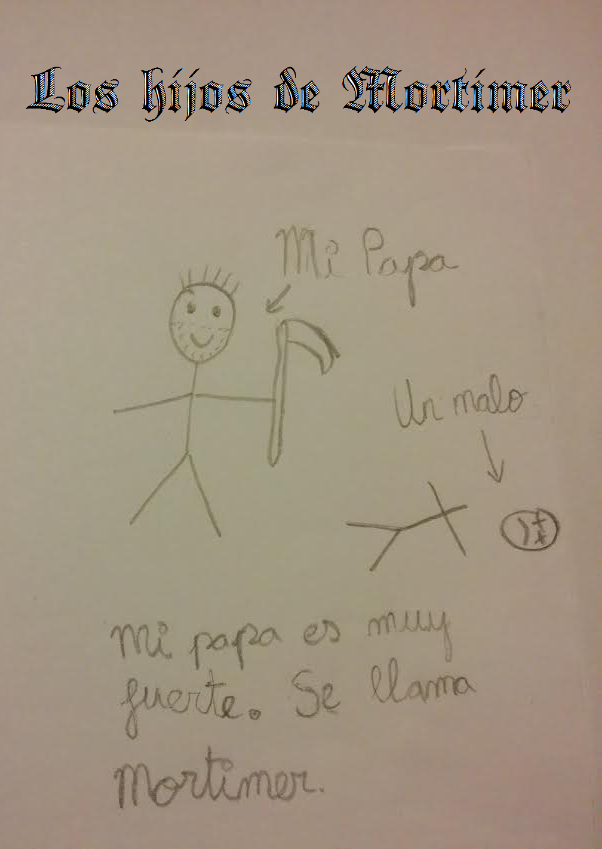 Los hijos de Mortimer
Mi Papa
Un malo
Mi papa es muy
fuerte. Se llama
Mortimer.